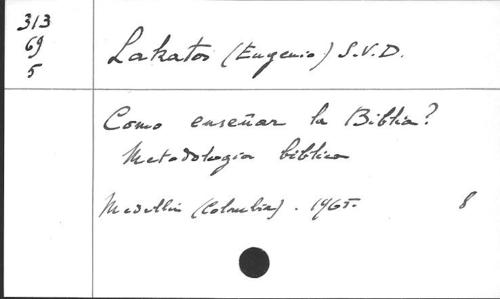 313
69
5
Lakatos (Eugenio) S.V.D.
Como enseñar la Biblia?
Metodologia biblica
Medellin (Colombia). 1965.
8